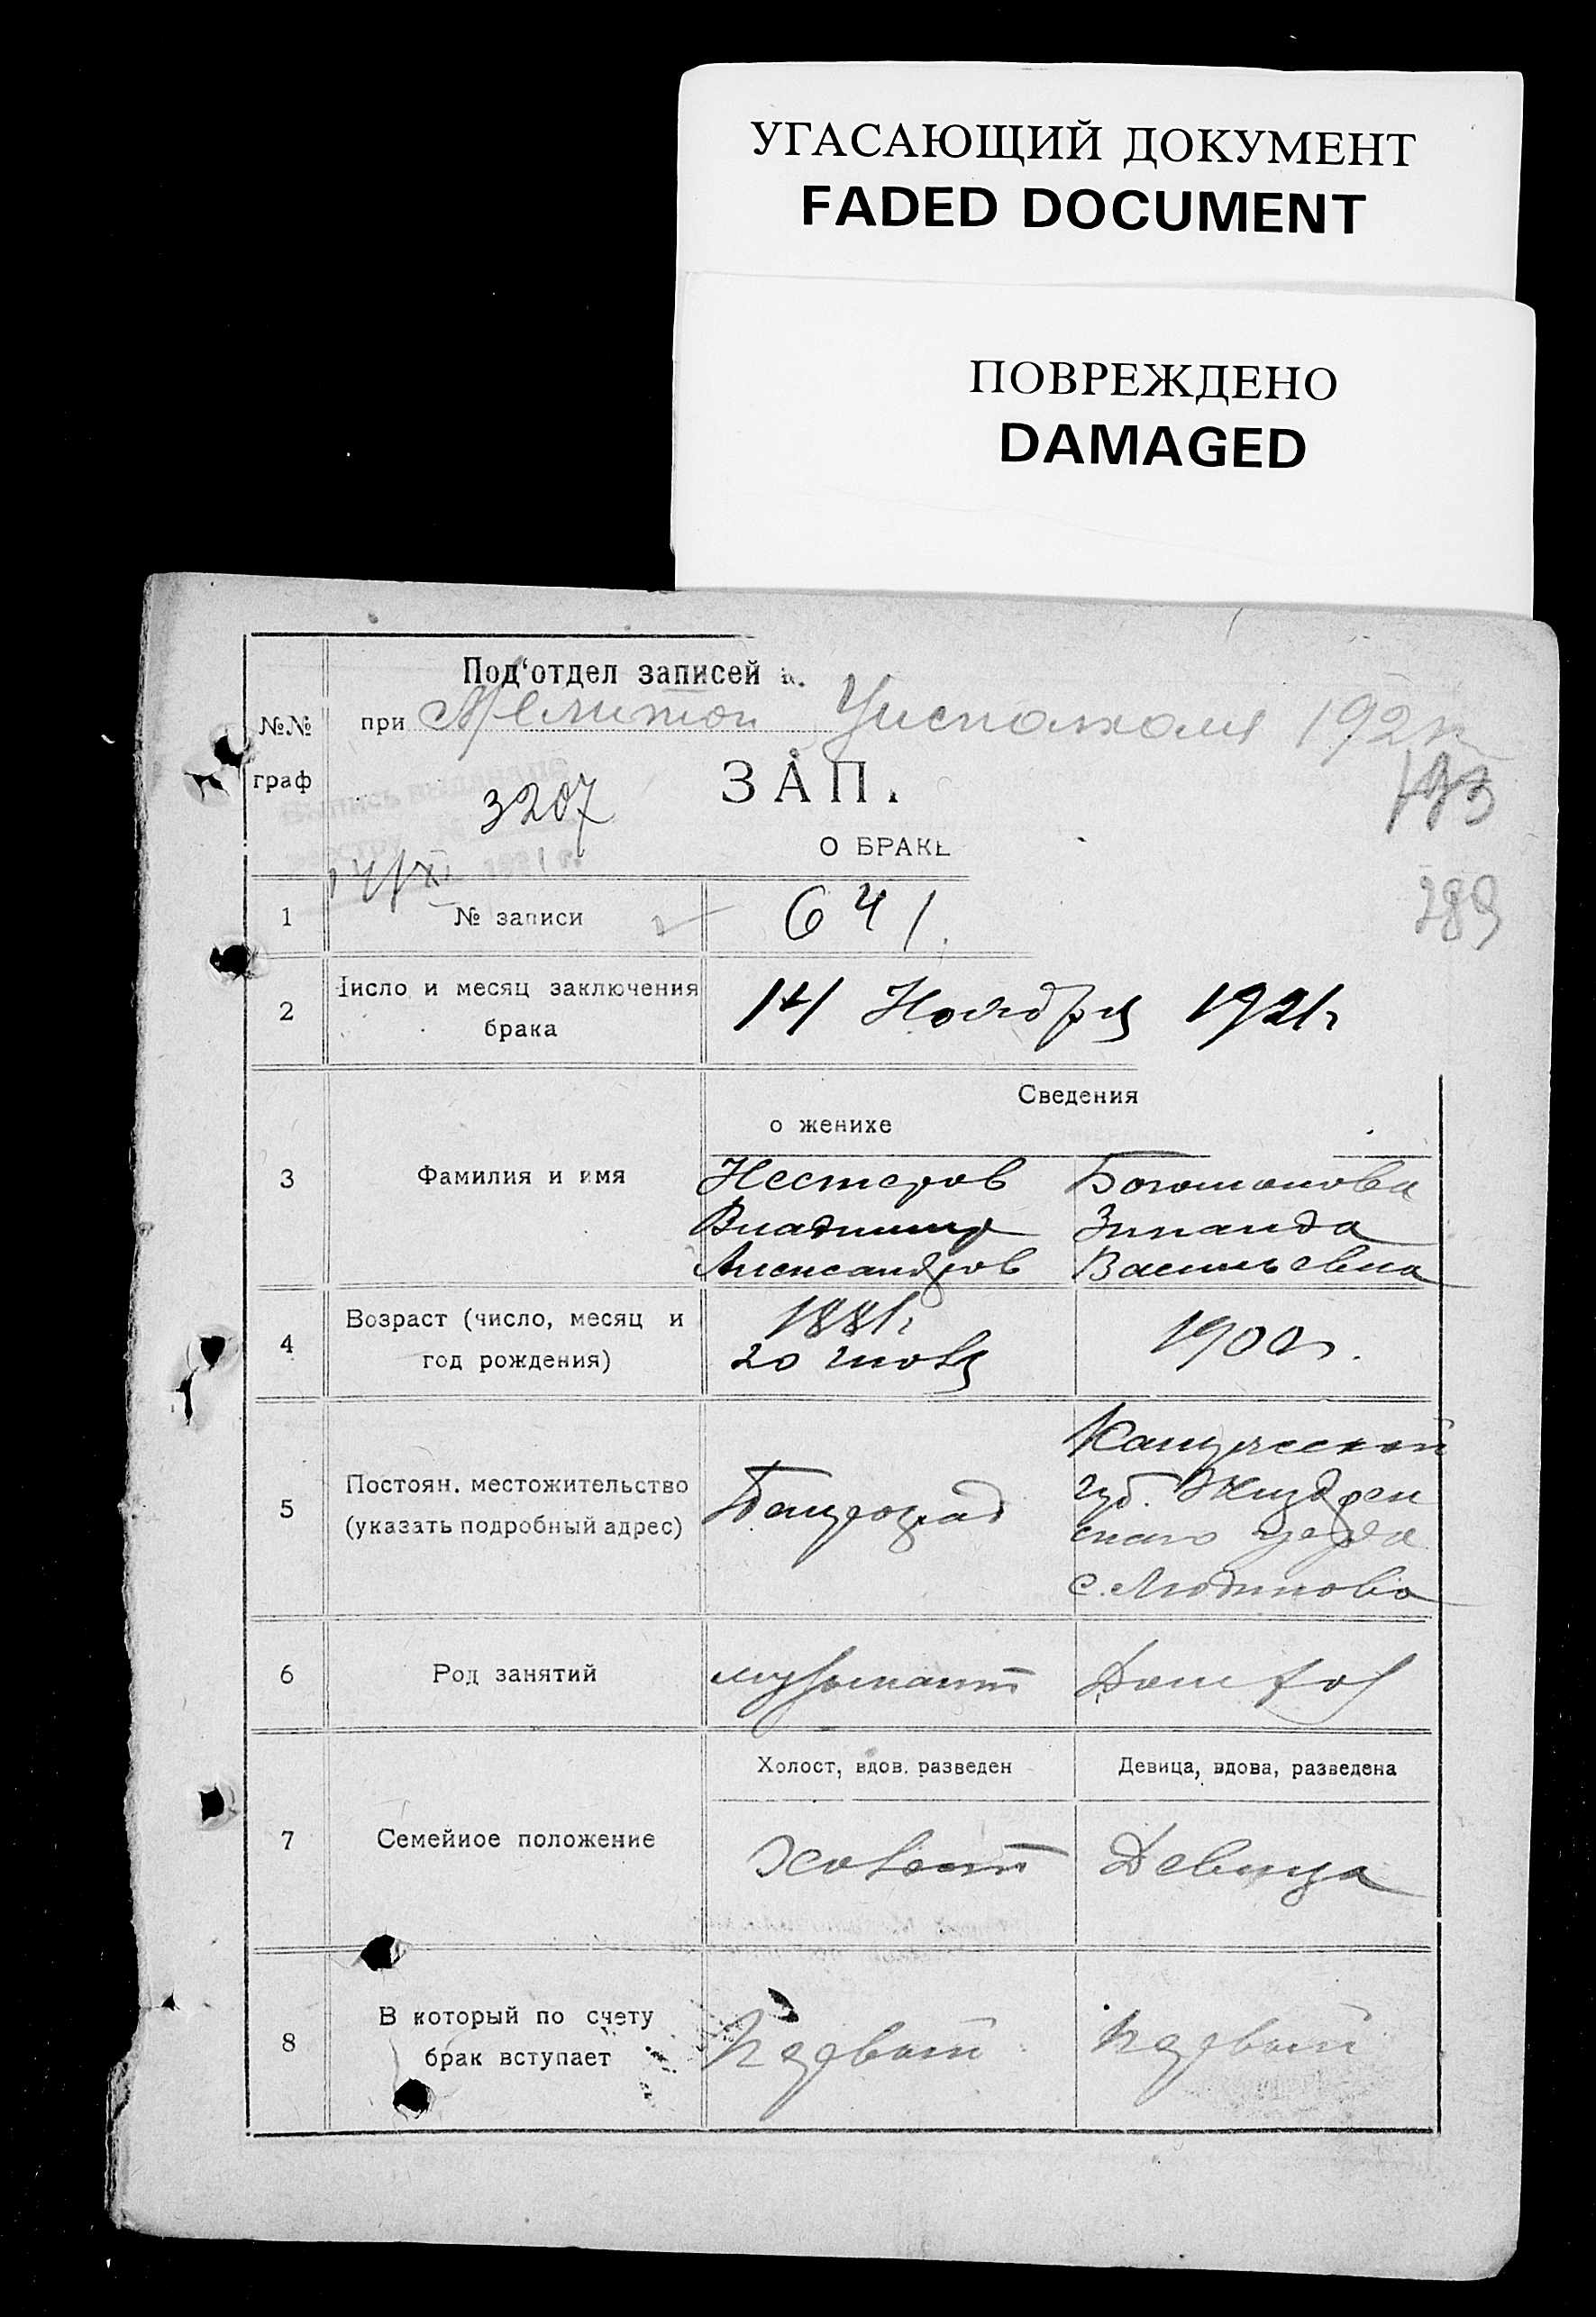 УГАСАЮЩИЙ ДОКУМЕНТ
FADED DOCUMENT
ПОВРЕЖДЕНО
DAMAGED
Под'отдел записей
№№ граф
при Мелитоп Уисполкоме 192
3207
ЗАП.
О БРАКЕ
193
14/XI
289
1 № записи 641.
2 Число и месяц заключения
брака
14 Ноября 1921г
Сведения
о женихе
3 Фамилия и имя
Нестеров
Владимир
Александров
Зинаида
Васильевна
4 Возраст (число, месяц и
год рождения)
1881г
20 июля
1900г.
5 Постоян. местожительство
(указать подробный адрес)
Калужской
губ. Жиздрен
ского уезда
с. Людиново
6 Род занятий
музыкант
Дом хоз
Холост, вдов. разведен
Девица, вдова, разведена
7 Семейное положение
Холост
Девица
8 В который по счету
брак вступает
Первый
Первый